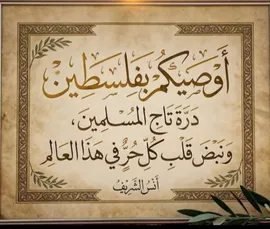 أُوصِيكُمْ بِفِلَسْطِينَ
دُرَّةِ تَاجِ الْمُسْلِمِينَ،
وَنَبْضِ قَلْبِ كُلِّ حُرٍّ فِي هَذَا الْعَالَمِ
أنس الشريف